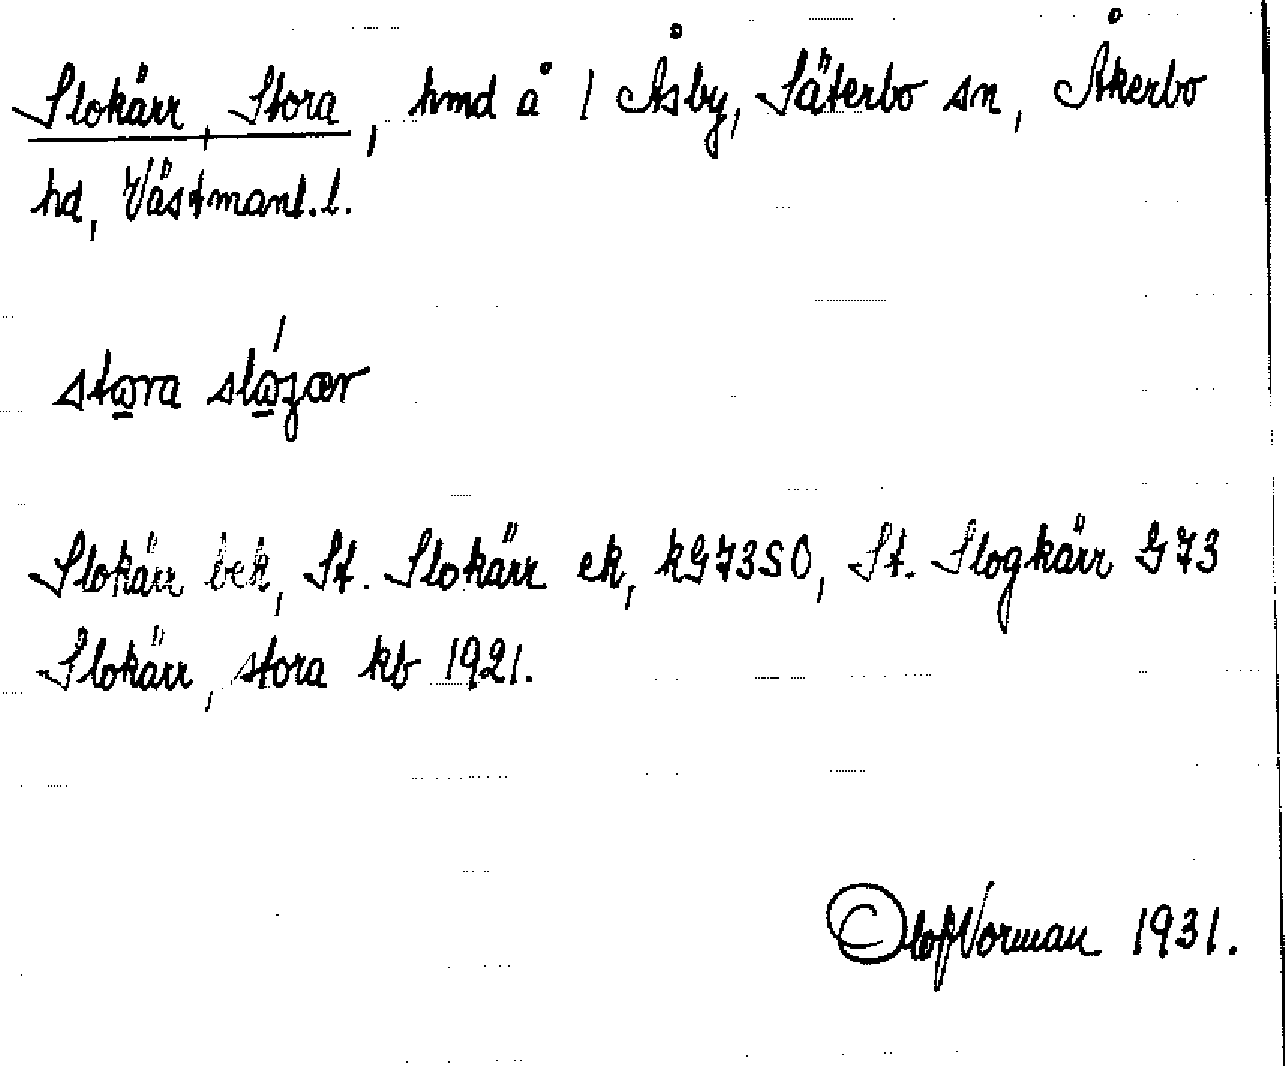 Slokärr, Stora, hmd å 1 Åsby, Säterbo sn, Åkerbo
hd, Västmanl. l.
stora slózær
Slokärr bek, St. Slokärr ek, kG73SO, St. Slogkärr G73
Slokärr, stora kb 1921.
Olof Norman 1931.